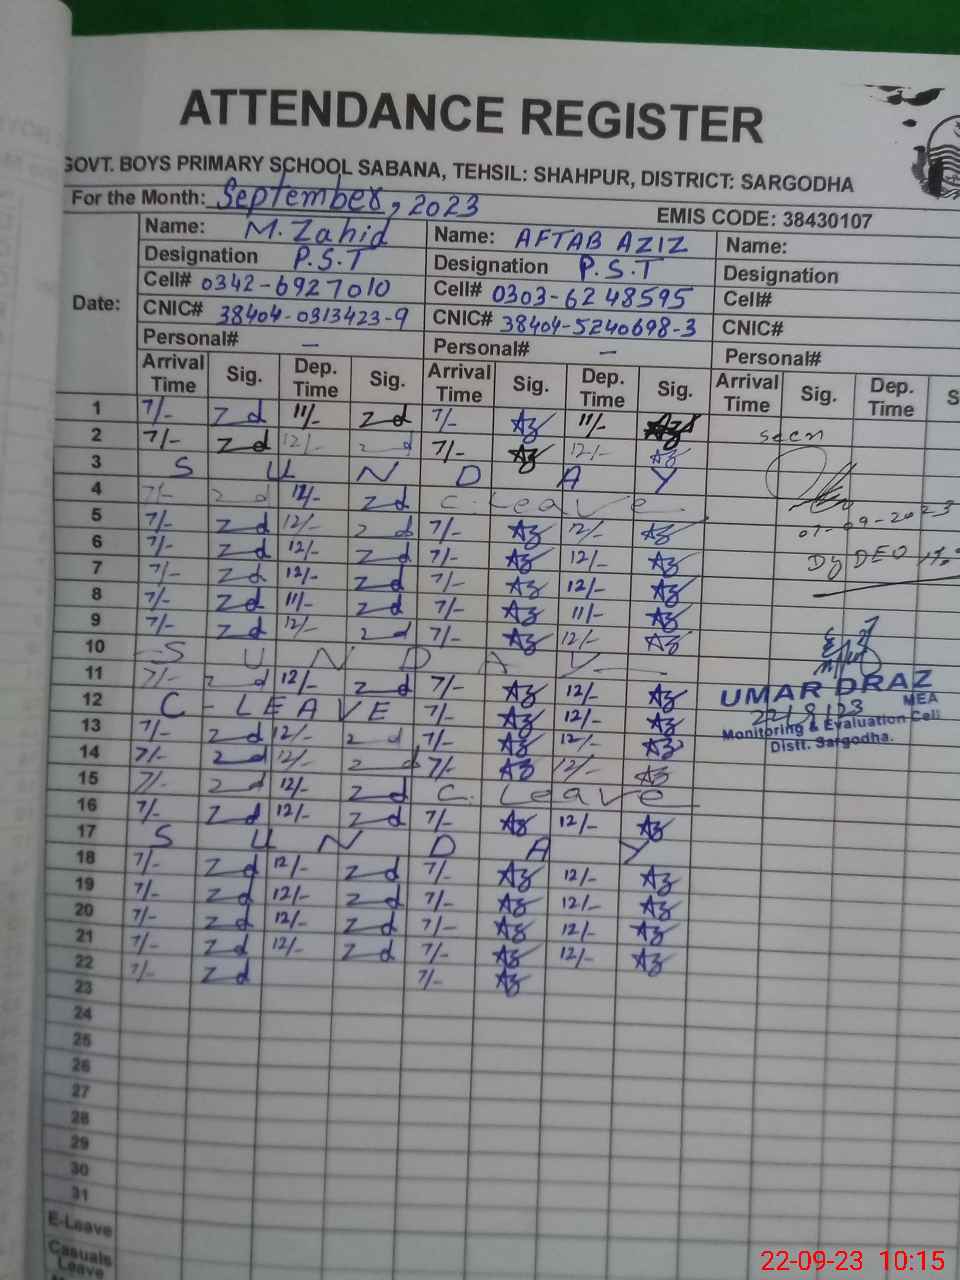 ATTENDANCE REGISTER
GOVT. BOYS PRIMARY SCHOOL SABANA, TEHSIL: SHAHPUR, DISTRICT: SARGODHA
For the Month: September, 2023
EMIS CODE: 38430107
Date:
Name: M. Zahid
Designation P.S.T
Cell# 0342-6927010
CNIC# 38404-0313423-9
Personal# –
Name: AFTAB AZIZ
Designation P.S.T
Cell# 0303-6248595
CNIC# 38404-5240698-3
Personal# –
Name:
Designation
Cell#
CNIC#
Personal#
Arrival Time Sig. Dep. Time Sig. Arrival Time Sig. Dep. Time Sig. Arrival Time Sig. Dep. Time S
1 7/- Zd 11/- Zd 7/- Az 11/- Az
2 7/- Zd 12/- Zd 7/- Az 12/- Az
3 S U N D A Y
4 7/- Zd 12/- Zd C. Leave
5 7/- Zd 12/- Zd 7/- Az 12/- Az
6 7/- Zd 12/- Zd 7/- Az 12/- Az
7 7/- Zd 12/- Zd 7/- Az 12/- Az
8 7/- Zd 11/- Zd 7/- Az 11/- Az
9 7/- Zd 12/- Zd 7/- Az 12/- Az
10 S U N D A Y
11 7/- Zd 12/- Zd 7/- Az 12/- Az
12 C - LEAVE 7/- Az 12/- Az
13 7/- Zd 12/- Zd 7/- Az 12/- Az
14 7/- Zd 12/- Zd 7/- Az 12/- Az
15 7/- Zd 12/- Zd C. Leave
16 7/- Zd 12/- Zd 7/- Az 12/- Az
17 S U N D A Y
18 7/- Zd 12/- Zd 7/- Az 12/- Az
19 7/- Zd 12/- Zd 7/- Az 12/- Az
20 7/- Zd 12/- Zd 7/- Az 12/- Az
21 7/- Zd 12/- Zd 7/- Az 12/- Az
22 7/- Zd 7/- Az
23
24
25
26
27
28
29
30
31
E-Leave
Casuals Leave
seen
07-09-2023
Dy DEO
UMAR DRAZ
MEA
22/9/23
Monitoring & Evaluation Cell
Distt. Sargodha.
22-09-23 10:15